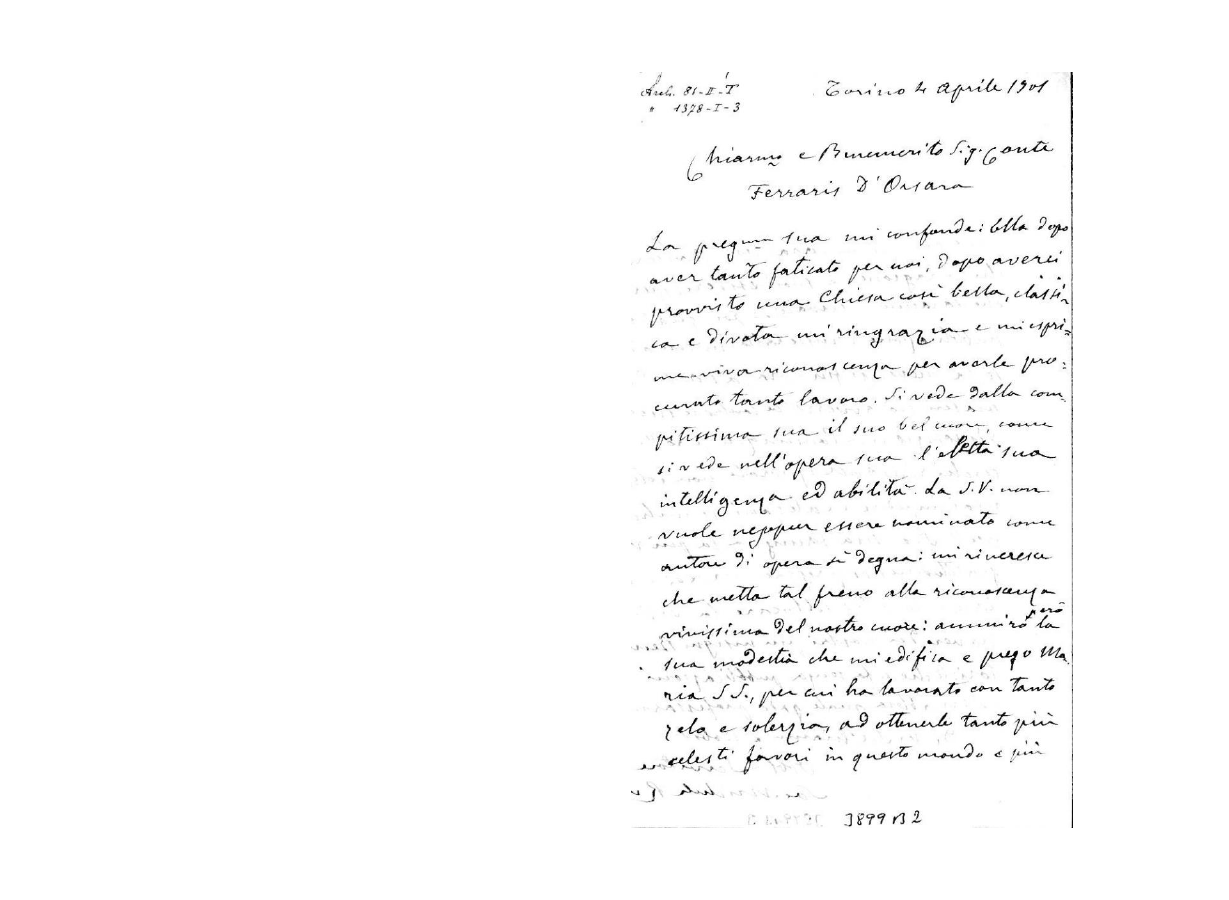 Arch. 81-II-T
" 1378-I-3
Torino 4 Aprile 1901
Chiarmo e Benemerito Sig. Conte
Ferraris D'Orsara
La pregma sua mi confonde: Ella dopo
aver tanto faticato per noi, dopo averci
provvisto una Chiesa così bella, classi-
ca e divota mi ringrazia e mi espri=
me viva riconoscenza per averle pro:
curato tanto lavoro. Si vede dalla com
pitissima sua il suo bel cuore, come
si vede nell'opera sua l'eletta sua
intelligenza ed abilità. La S.V. non
vuole neppur essere nominato come
autore di opera sì degna: mi rincresce
che metta tal freno alla riconoscenza
vivissima del nostro cuore: ammirò però la
sua modestia che mi edifica e prego Ma
ria SS., per cui ha lavorato con tanto
zelo e solerzia, ad ottenerle tanto più
celesti favori in questo mondo e più
3899 B 2